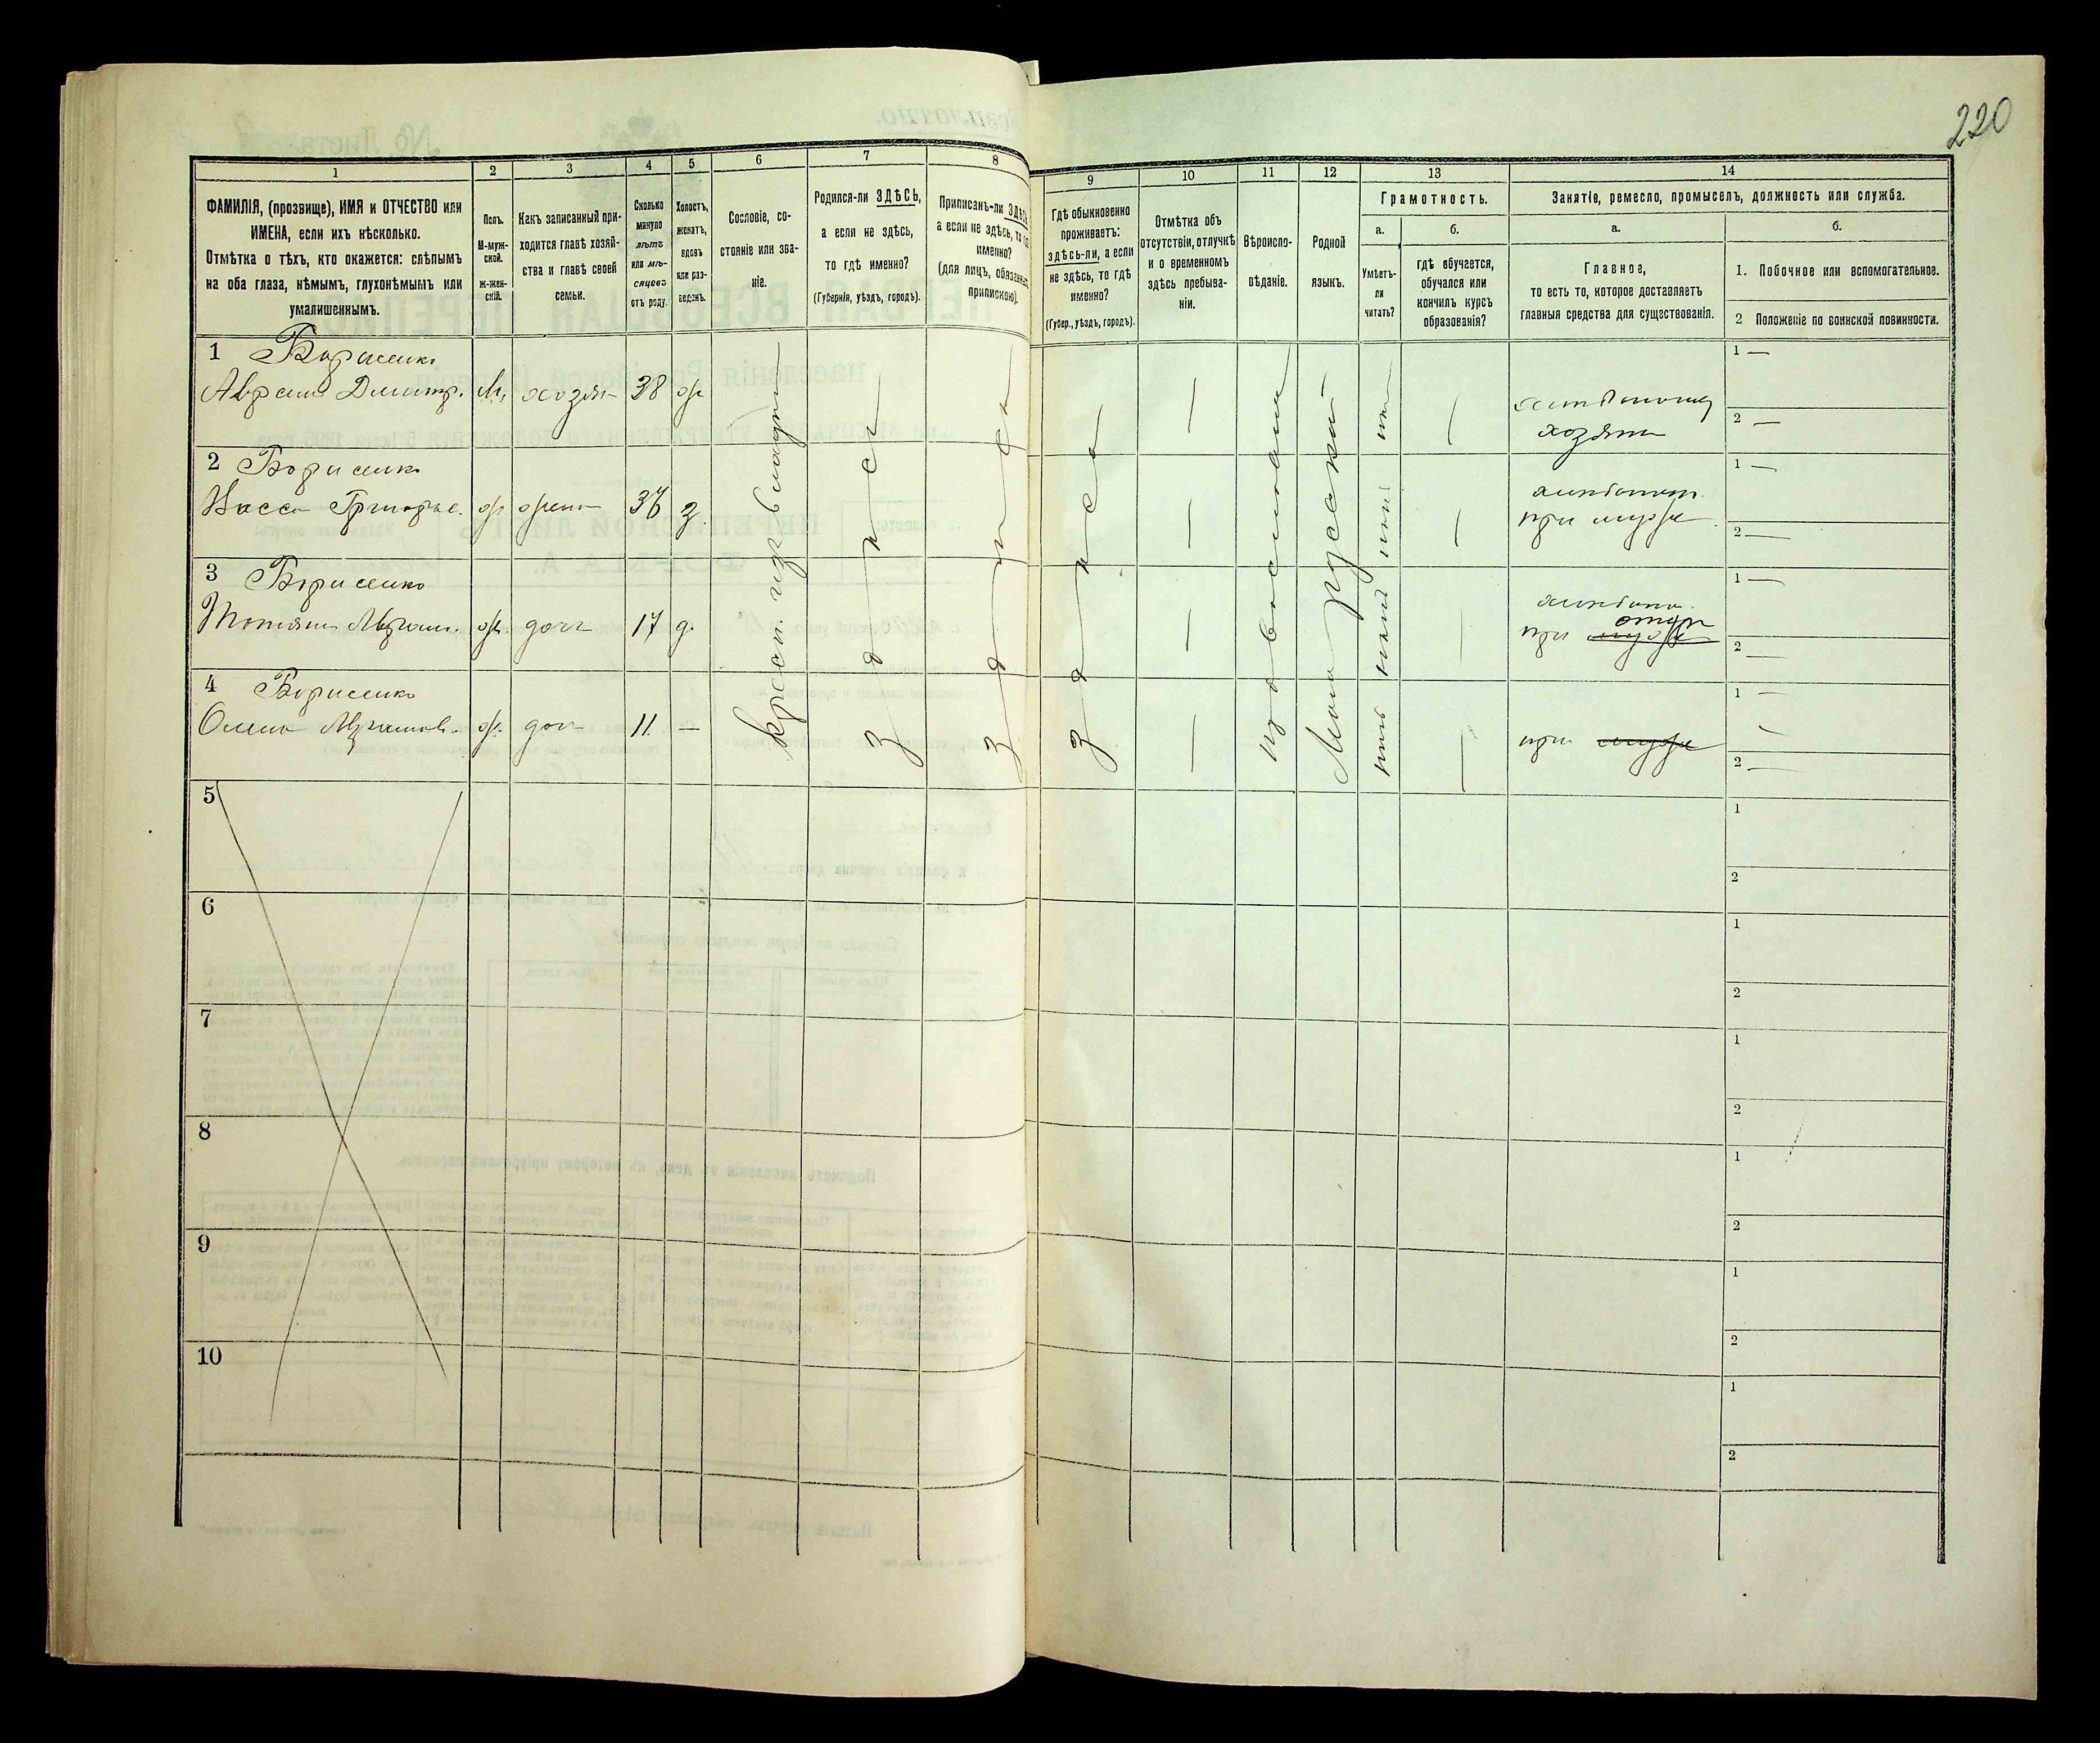 220
1
2
3
4
5
6
7
8
9
10
11
12
13
14
ФАМИЛІЯ, (прозвище), ИМЯ и ОТЧЕСТВО или
ИМЕНА, если ихъ нѣсколько.
Отмѣтка о тѣхъ, кто окажется: слѣпымъ
на оба глаза, нѣмымъ, глухонѣмымъ или
умалишеннымъ.
Полъ.
М-муж-
ской.
ж-жен-
скій.
Какъ записанный при-
ходится главѣ хозяй-
ства и главѣ своей
семьи.
Сколько
минуло
лѣтъ
или мѣ-
сяцевъ
отъ роду.
Холостъ,
женатъ,
вдовъ
или раз-
веденъ.
Сословіе, со-
стояніе или зва-
ніе.
Родился-ли ЗДѢСЬ,
а если не здѣсь,
то гдѣ именно?
(Губернія, уѣздъ, городъ).
Приписанъ-ли ЗДѢСЬ,
а если не здѣсь, то гдѣ
именно?
(для лицъ, обязанныхъ
припискою).
Гдѣ обыкновенно
проживаетъ:
здѣсь-ли, а если
не здѣсь, то гдѣ
именно?
(Губер., уѣздъ, городъ).
Отмѣтка объ
отсутствіи, отлучкѣ
и о временномъ
здѣсь пребыва-
ніи.
Вѣроиспо-
вѣданіе.
Родной
языкъ.
Грамотность.
а.
Умѣетъ-
ли
читать?
б.
гдѣ обучается,
обучался или
кончилъ курсъ
образованія?
Занятіе, ремесло, промыселъ, должность или служба.
а.
Главное,
то есть то, которое доставляетъ
главныя средства для существованія.
б.
1. Побочное или вспомогательное.
2 Положеніе по воинской повинности.
1 Борисенко
Аврамъ Дмитр. М. хозяи 38 ж
хозяинъ
1 —
2 —
2 Борисенко
Григорье. ж жена 36 з.
при мужѣ
1 —
2 —
3 Борисенко
Татьяна Аврам. ж. доч 17 д.
отцѣ
при мужѣ
1 —
2 —
4 Борисенко
Аврамов. ж. доч 11 —
при мужѣ
1 —
2 —
крест. изъ владѣл
здѣсь
здѣсь
здѣсь
православн
Мало русский
нѣтъ
5
6
7
8
9
10
1
2
1
2
1
2
1
2
1
2
1
2